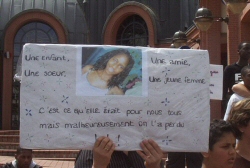 Une enfant,
Une soeur,
Une amie,
Une jeune femme
C'est ce qu'elle était pour nous tous
mais malheureusement on l'a perdu